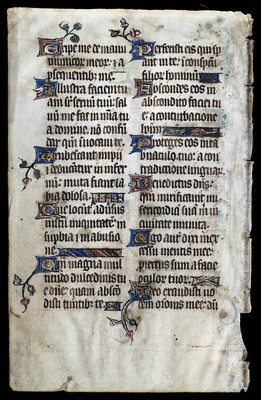 Eripe me de manu
inimicor meor: & a
psequentib: me.
Illustra faciem tu
am sr seruu tuu: sal
uu me fac in mia tu
a domine no confu
dar qm inuocaui te.
Erubescant impii
& deducantur in infer
nu: muta fiant la
bia dolosa.
Que locuntr aduersus
iustu iniquitate: in
supbia & in abusio
ne.
Qm magna mul
titudo dulcedinis tu
e dne: quam absco
disti timetib: te.
Perfecisti eis qui sp
ant in te: i conspectu
filior hominu.
Abscondes eos in
abscondito faciei tu
e: a conturbatione
hominu.
Proteges eos in ta
bnaculo tuo: a con
tradictione linguar.
Benedictus dns:
qm mirificauit mi
sericordia sua m in
ciuitate munita.
Ego aut dixi in ex
cessu mentis mee:
piectus sum a facie
oculor tuor.
Ideo exaudisti uo
cem oronis mee: du